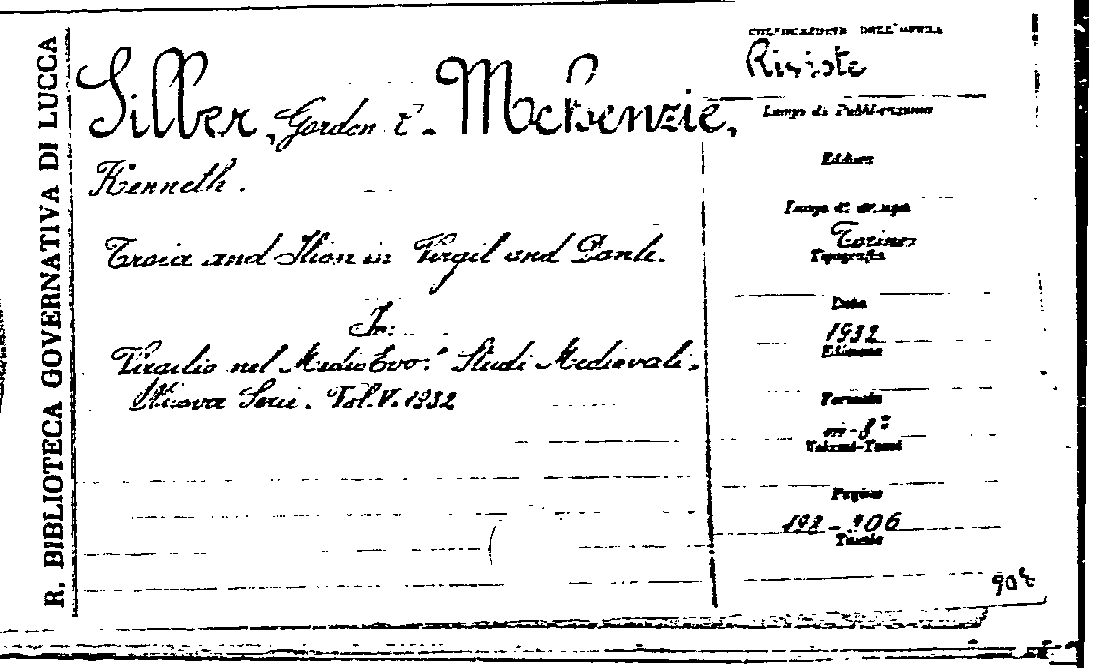 R. BIBLIOTECA GOVERNATIVA DI LUCCA
Silber, Gordon e. Mckenzie,
Kenneth.
Troia and Ilion in Virgil and Dante.
In:
Virgilio nel Medio Evo: Studi Medievali.
Nuova Serie. Vol. V. 1932
COLLOCAZIONE DELL'OPERA
Riviste
Luogo di Pubblicazione
Editore
Luogo di stampa
Torino
Tipografia
Data
1932
Edizione
Formato
in-8º
Volumi-Tomi
Pagine
Tavole